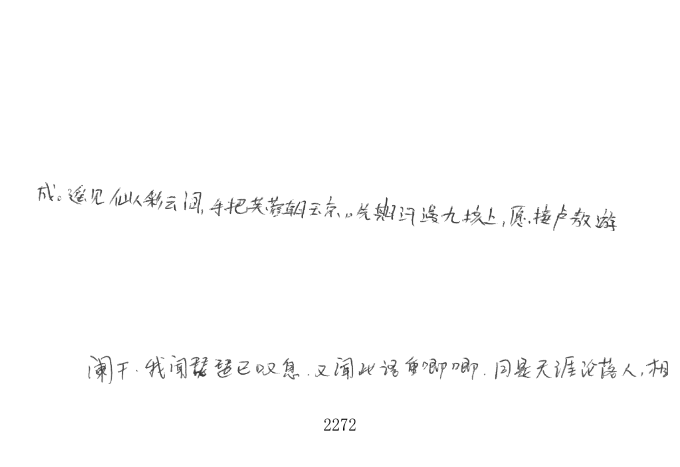 成。遥见仙人彩云间,手把芙蓉朝玉京。先期汗漫九垓上,愿接卢敖游
阑干.我闻琵琶已叹息.又闻此语重唧唧.同是天涯沦落人,相
2272